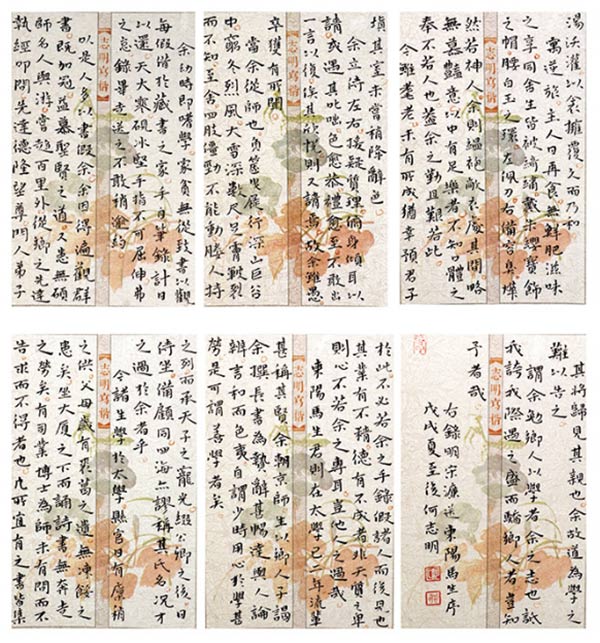 余幼時即嗜學家貧無從致書以觀
每假借於藏書之家手自筆錄計日
以還天大寒硯冰堅手指不可屈伸弗
之怠錄畢走送之不敢稍逾約
以是人多以書假余余因得遍觀群
書既加冠益慕聖賢之道又患無碩
師名人與游嘗趨百里外從鄉之先達
執經叩問先達德隆望尊門人弟子
志明寫情
填其室未嘗稍降辭色
余立侍左右援疑質理俯身傾耳以
請或遇其叱咄色愈恭禮愈至不敢出
一言以復俟其欣悅則又請焉故余雖愚
卒獲有所聞
當余從師也負篋曳屣行深山巨谷
中窮冬烈風大雪深數尺足膚皸裂
而不知至舍四肢僵勁不能動媵人持
志明寫情
湯沃灌以衾擁覆久而乃和
寓逆旅主人日再食無鮮肥滋味
之享同舍生皆被綺繡戴朱纓寶飾
之帽腰白玉之環左佩刀右備容臭燁
然若神人余則縕袍敝衣處其間略
無慕豔意以中有足樂者不知口體之
奉不若人也蓋余之勤且艱若此
今雖耄老未有所成猶幸預君子
志明寫情
之列而承天子之寵光綴公卿之後日
侍坐備顧問四海亦謬稱其氏名況才
之過於余者乎
今諸生學於太學縣官日有廩稍
之供父母歲有裘葛之遺無凍餒之
患矣坐大廈之下而誦詩書無奔走
之勞矣有司業博士為師未有問而不
告求而不得者也凡所宜有之書皆集
志明寫情
於此不必若余之手錄假諸人而後見也
其業有不精德有不成者非天質之卑
則心不若余之專耳豈他人之過哉
東陽馬生君則在太學已二年流輩
甚稱其賢余朝京師生以鄉人子謁
余撰長書為贄辭甚暢達與之論
辨言和而色夷自謂少時用心於學甚
勞是可謂善學者矣
志明寫情
其將歸見其親也余故道為學之
難以告之
謂余勉鄉人以學者余之志也詆
我誇我際遇之盛而驕鄉人者豈知
予者哉
右錄明宋濂送東陽馬生序
戊戌夏至後何志明
志明寫情